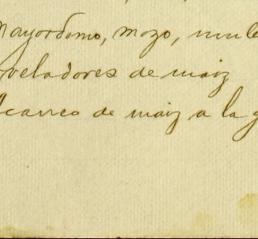 Mayordomo, mozo, mule
veladores de maiz
Acarreo de maiz a la g